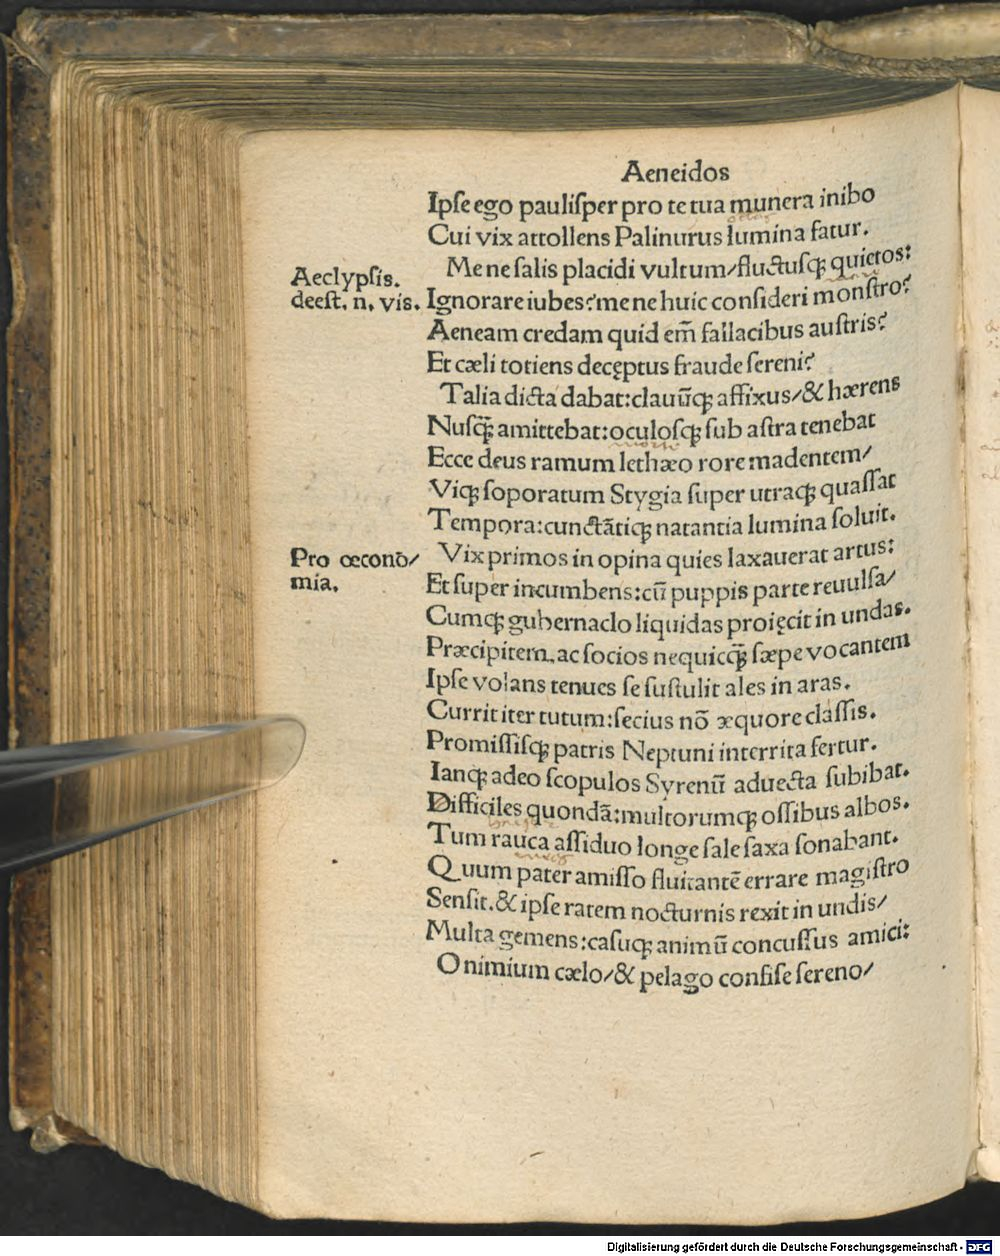 Aeneidos
Ipſe ego pauliſper pro te tua munera inibo
Cui vix attollens Palinurus lumina fatur.
Me ne ſalis placidi vultum/fluctuſqꝫ quietos:
Aeclypſis.
deeſt. n. vis.
Ignorare iubes? me ne huic conſideri monſtro?
Aeneam credam quid em̄ fallacibus auſtris?
Et cæli totiens decęptus fraude ſereni?
Talia dicta dabat: clauūqꝫ affixus/& hærens
Nuſqꝫ̄ amittebat: oculoſqꝫ ſub aſtra tenebat
Ecce deus ramum lethæo rore madentem/
Viqꝫ ſoporatum Stygia ſuper utraqꝫ quaſſat
Tempora: cunctātiqꝫ natantia lumina ſoluit.
Pro œconō/
mia.
Vix primos in opina quies laxauerat artus:
Et ſuper incumbens: cū puppis parte reuulſa/
Cumqꝫ gubernaclo liquidas proięcit in undas.
Præcipitem, ac ſocios nequicqꝫ̄ ſæpe vocantem
Ipſe volans tenues ſe ſuſtulit ales in aras.
Currit iter tutum: ſecius nō æquore claſſis.
Promiſſiſqꝫ patris Neptuni interrita fertur.
Ianqꝫ adeo ſcopulos Syrenū aduecta ſubibat.
Difficiles quondā: multorumqꝫ oſſibus albos.
Tum rauca aſſiduo longe ſale ſaxa ſonabant.
Quum pater amiſſo fluitantē errare magiſtro
Senſit. & ipſe ratem nocturnis rexit in undis/
Multa gemens: caſuqꝫ animū concuſſus amici:
O nimium cælo/& pelago confiſe ſereno/
Digitalisierung gefördert durch die Deutsche Forschungsgemeinschaft - DFG